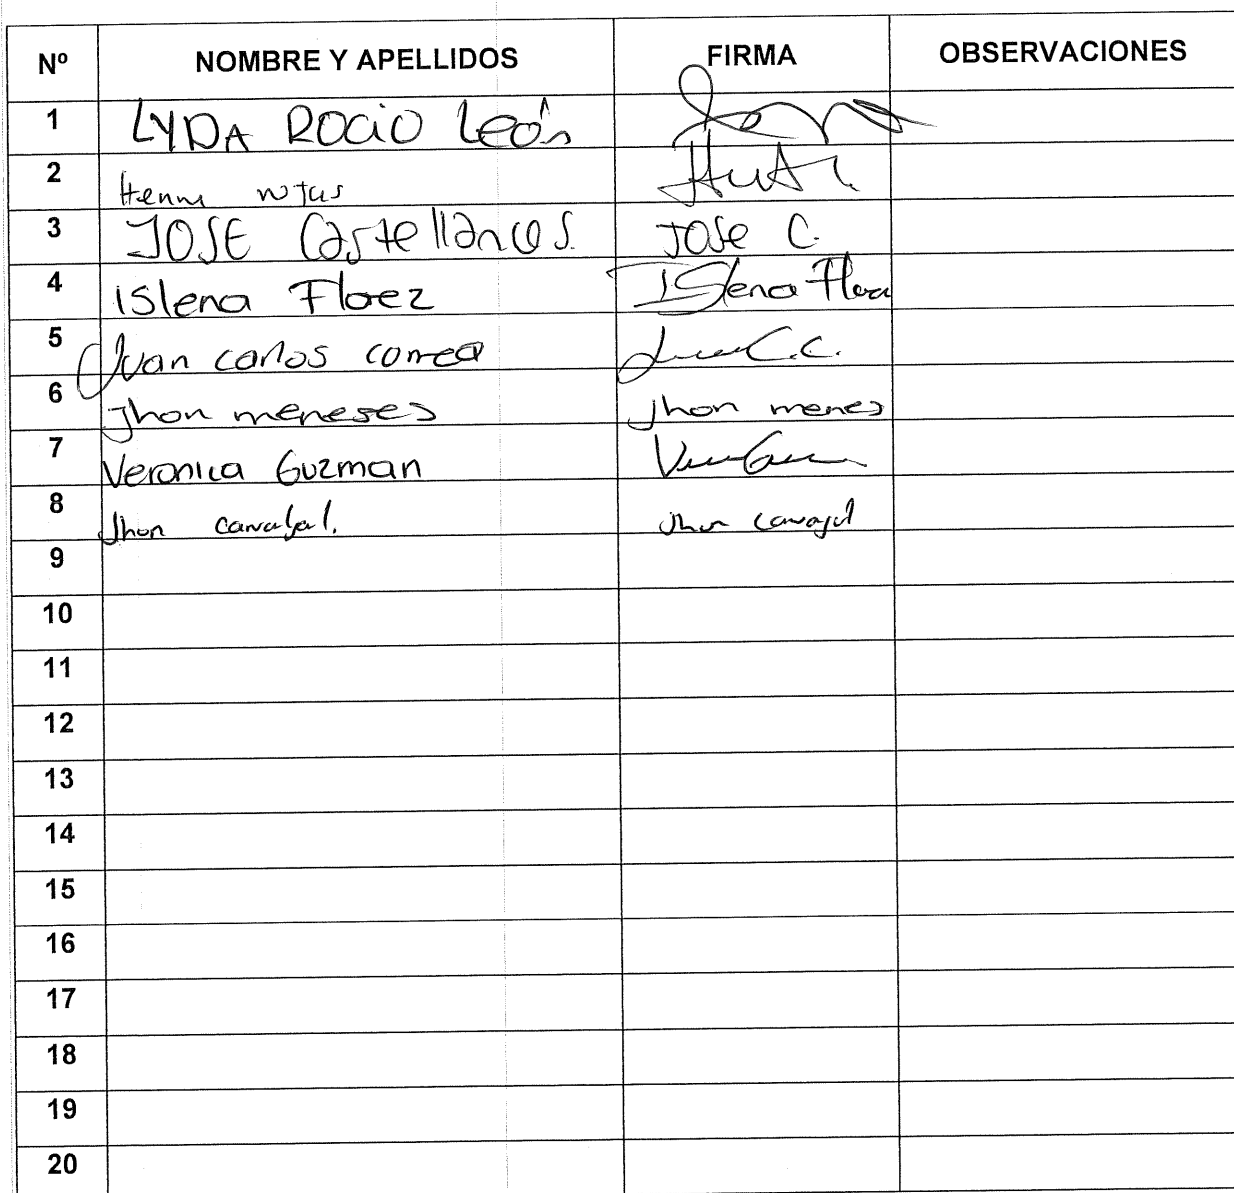 Nº NOMBRE Y APELLIDOS FIRMA OBSERVACIONES
1 LYDA ROCIO León
2
3 JOSE Castellanos. JOSE C.
4 islena Floez Islena Floez
5 Juan carlos correa C.C.
6 Jhon meneses Jhon menes
7 Veronica Guzman
8 Jhon carvajal. Jhon carvajal
9
10
11
12
13
14
15
16
17
18
19
20